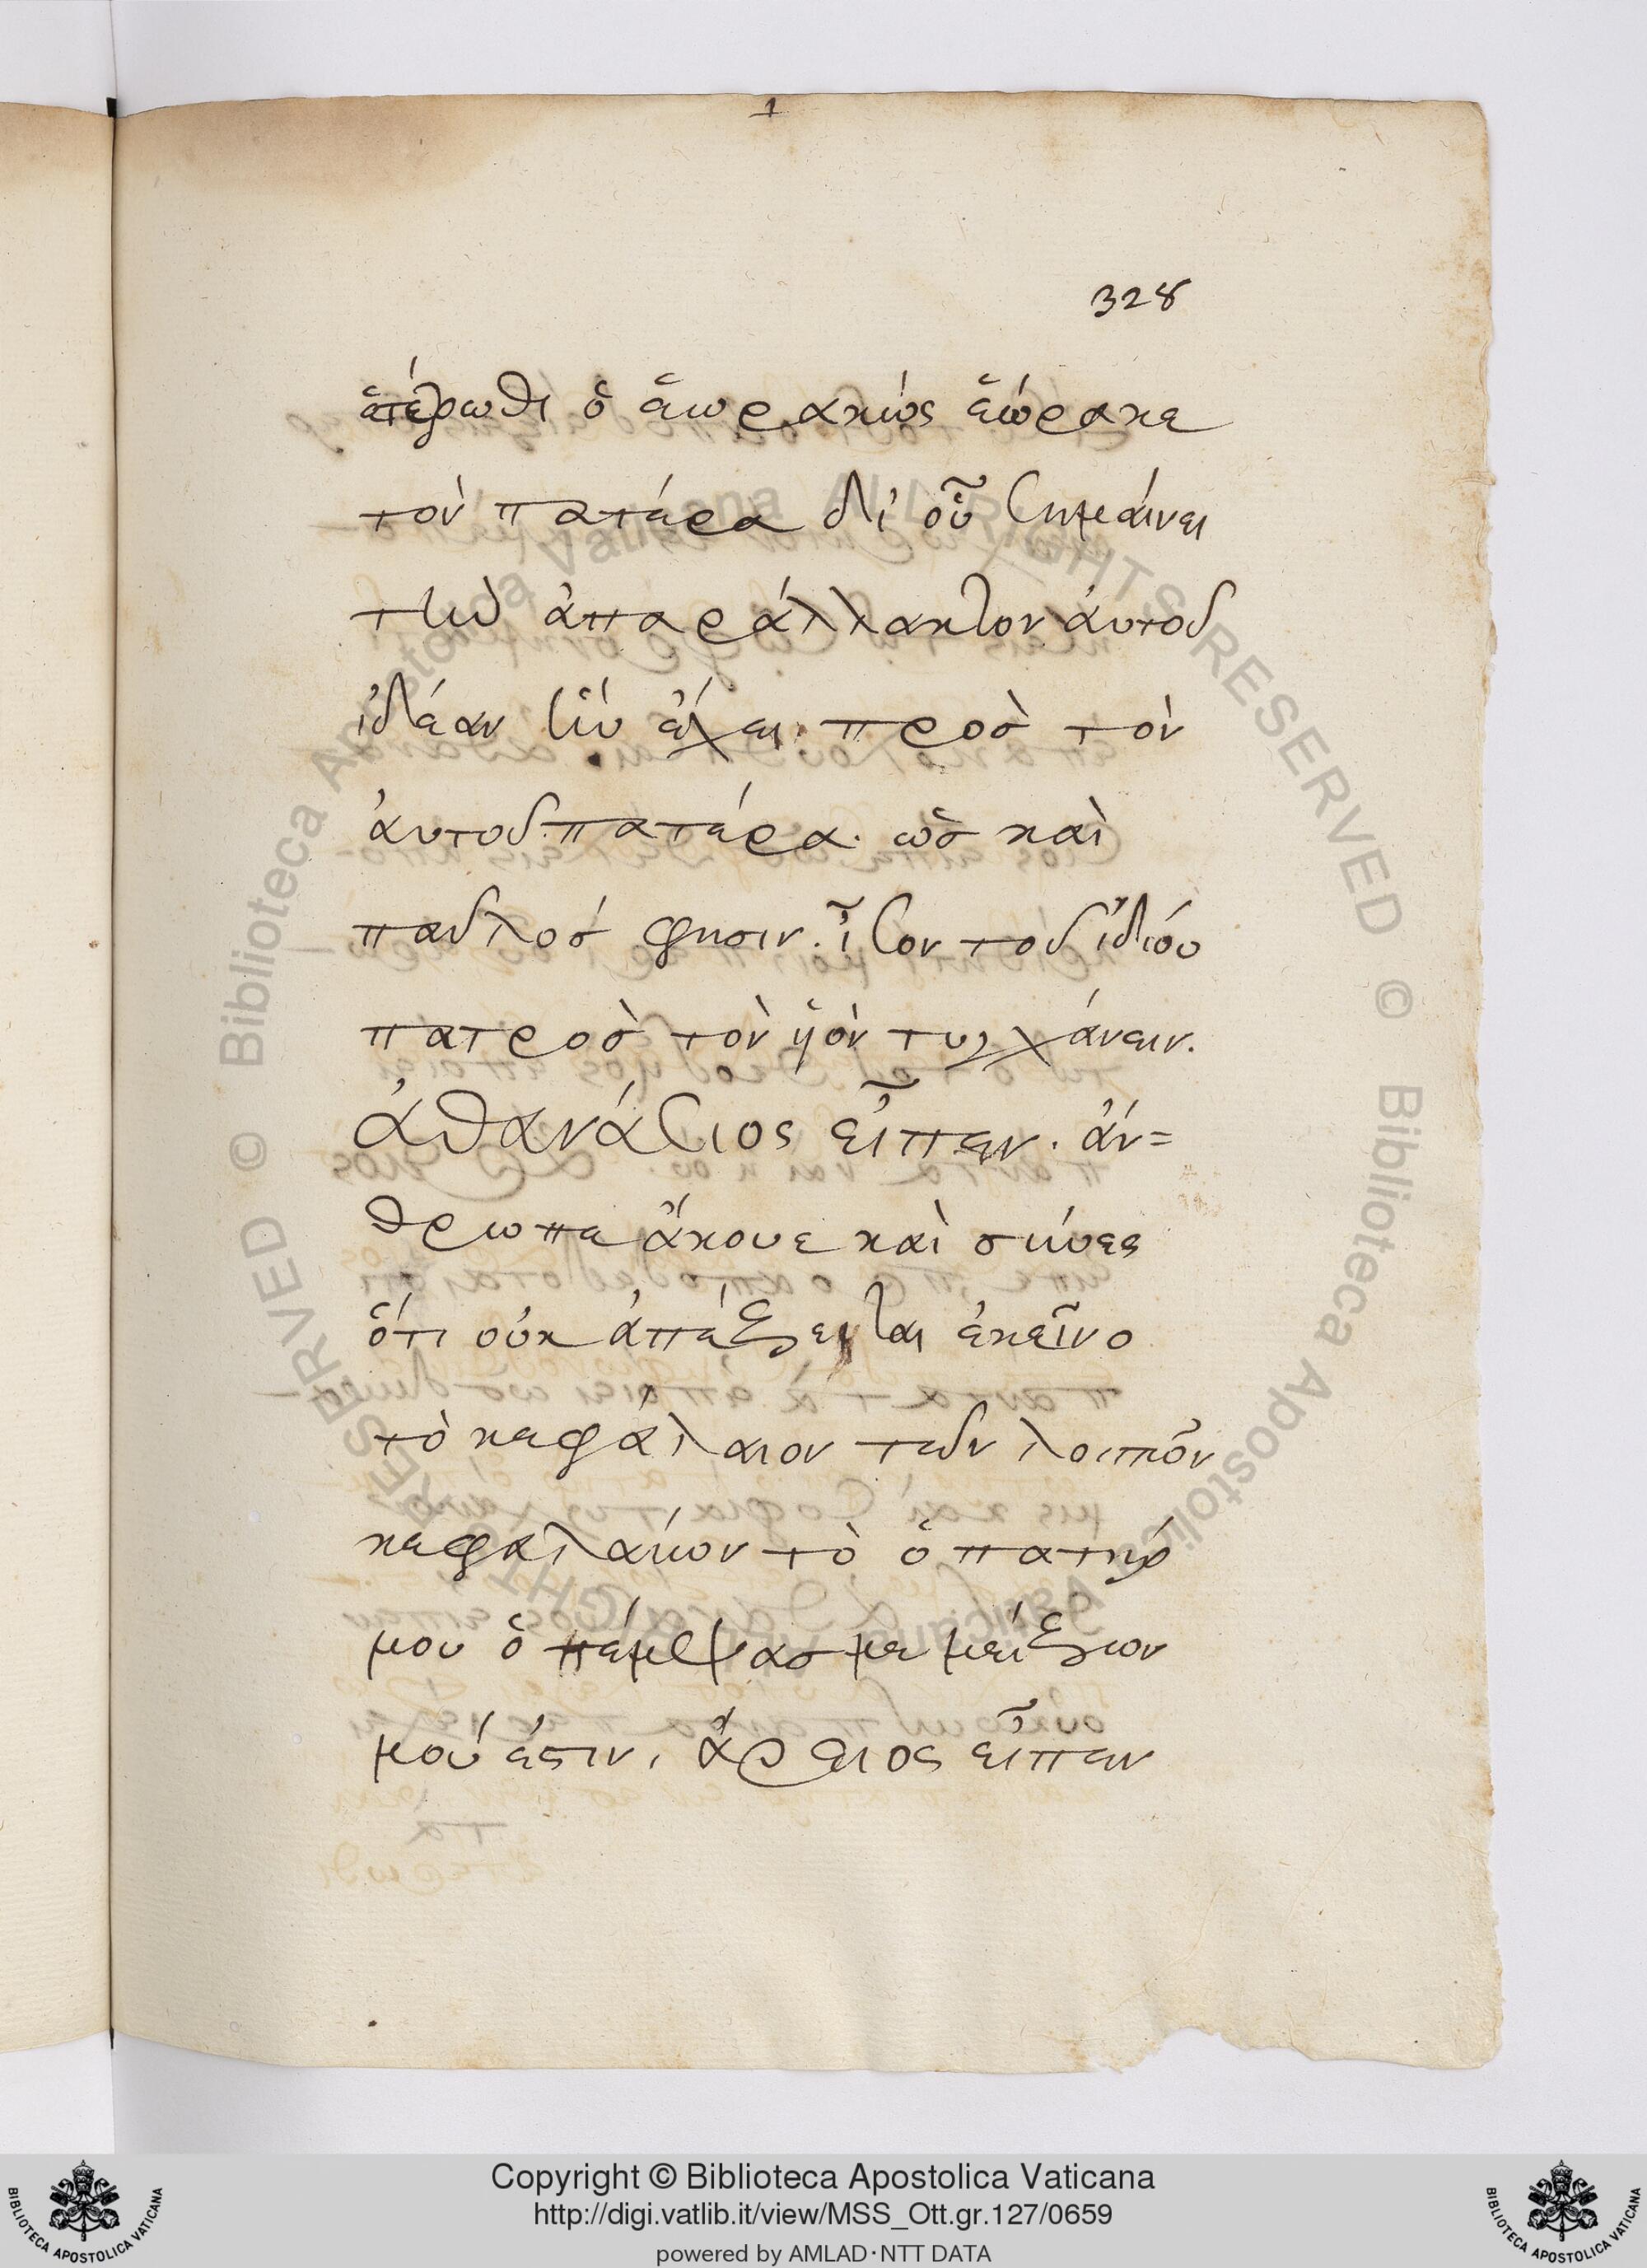 1
328
ἑτέρωθι ὁ ἑωρακὼς ἑώρακε
τὸν πατέρα δι' οὗ σημαίνει
τὴν ἀπαράλλακτον ἀυτοῦ
ἰδέαν ἣν ἔχει πρὸσ τὸν
ἀυτοῦ πατέρα. ὡσ καὶ
παῦλοσ φησιν. ἶσον τοῦ ἰδίου
πατροσ τὸν ὑὸν τυγχάνειν.
ἀθανάσιος εἶπεν. ἄν=
θρωπε ἄκουε καὶ σύνες
ὅτι οὐκ ἀπέξεσται ἐκεῖνο
τὸ κεφάλαιον τῶν λοιπῶν
κεφαλαίων τὸ ὁ πατήρ
μου ὁ πέμψασ με μείζων
μού ἐστιν. ἄρειος εἶπεν
Copyright © Biblioteca Apostolica Vaticana
http://digi.vatlib.it/view/MSS_Ott.gr.127/0659
powered by AMLAD·NTT DATA
BIBLIOTECA APOSTOLICA VATICANA
BIBLIOTECA APOSTOLICA VATICANA
© Biblioteca Apostolica Vaticana ALL RIGHTS RESERVED
© Biblioteca Apostolica Vaticana ALL RIGHTS RESERVED